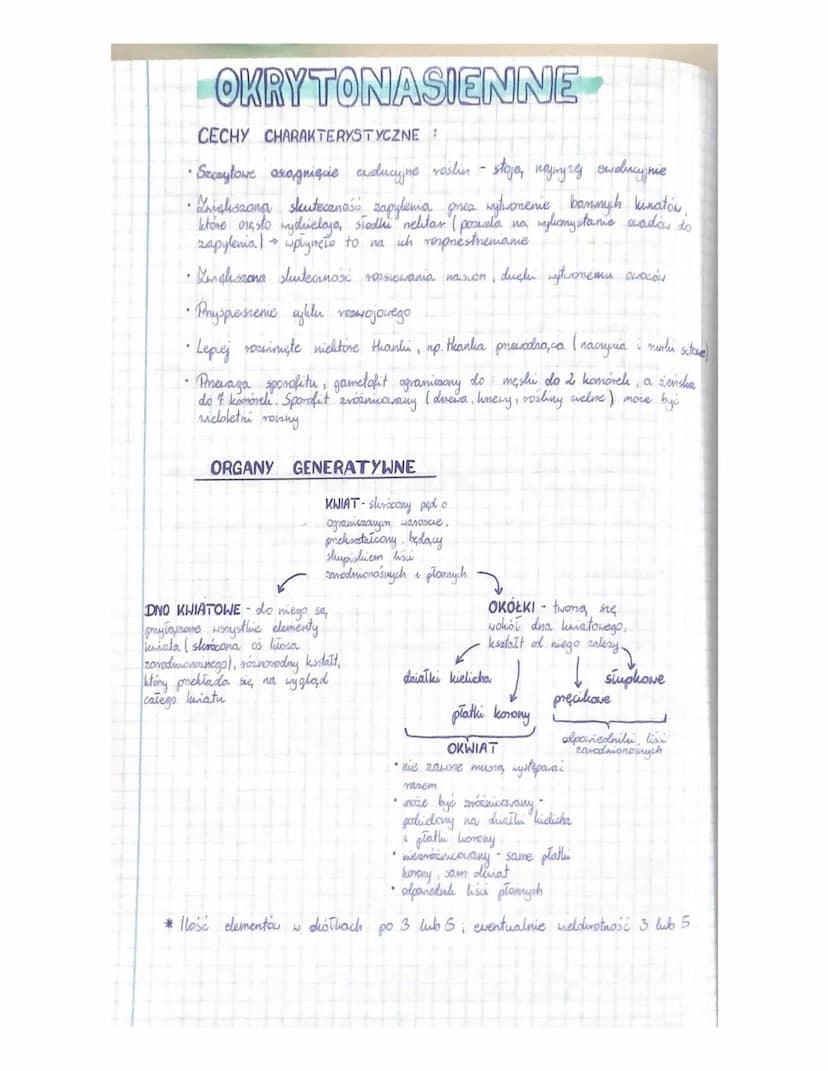 OKRYTONASIENNE
CECHY CHARAKTERYSTYCZNE :
• Szczytowe osiągnięcie ewolucyjne roślin - stoją najwyżej ewolucyjnie
• Zwiększona skuteczność zapylenia przez wytworzenie barwnych kwiatów,
które często wydzielają słodki nektar (pozwala na wykorzystanie owadów do
zapylenia) → wpłynęło to na ich rozprzestrzenianie
• Zwiększona skuteczność rozsiewania nasion, dzięki wytworzeniu owoców
• Przyspieszenie cyklu rozwojowego
• Lepiej rozwinięte niektóre tkanki, np. tkanka przewodząca (naczynia i rurki sitowe)
• Przewaga sporofitu, gametofit ograniczony do : męski do 2 komórek, a żeńska
do 7 komórek. Sporofit zróżnicowany (drzewa, krzewy, rośliny zielne) może być
wieloletni roczny
ORGANY GENERATYWNE
KWIAT - skrócony pęd o
ograniczonym wzroście,
przekształcony, będący
skupiskiem liści
zarodnionośnych i płonnych
DNO KWIATOWE - do niego są
przyłączone wszystkie elementy
kwiata (skrócona oś kłosa
zarodnionośnego), różnorodny kształt,
który przekłada się na wygląd
całego kwiatu
OKÓŁKI - tworzą się
wokół dna kwiatowego,
kształt od niego zależy
działki kielicha
płatki korony
pręcikowe
słupkowe
OKWIAT
odpowiedniki liści
zarodnionośnych
• nie zawsze muszą występować
razem
• może być zróżnicowany -
podzielony na działki kielicha
i płatki korony
• niezróżnicowany - same płatki
korony, sam okwiat
• odpowiednik liści płonnych
* Ilość elementów w okółkach po 3 lub 5, ewentualnie wielokrotność 3 lub 5